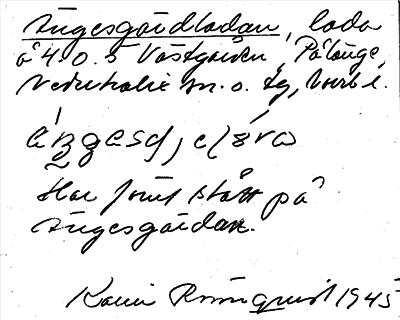 Ängesgårdladan, lada
å 4.0.5 Västgården, Pålänge,
Nederkalix sn. o. tg, Norrb l.
Har förut stått på
Ängesgårdan.
Karin Rönnquist 1945